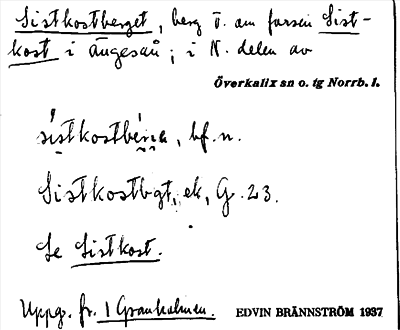 Sistkostberget, berg Ö. om forsen Sist-
kost i Ängesån; i N. delen av
Överkalix sn o. tg Norrb. l.
bf. n.
Sistkostbgt, ek, G. 23.
Se Sistkost.
Uppg. fr. 1 Granholmen. EDVIN BRÄNNSTRÖM 1937